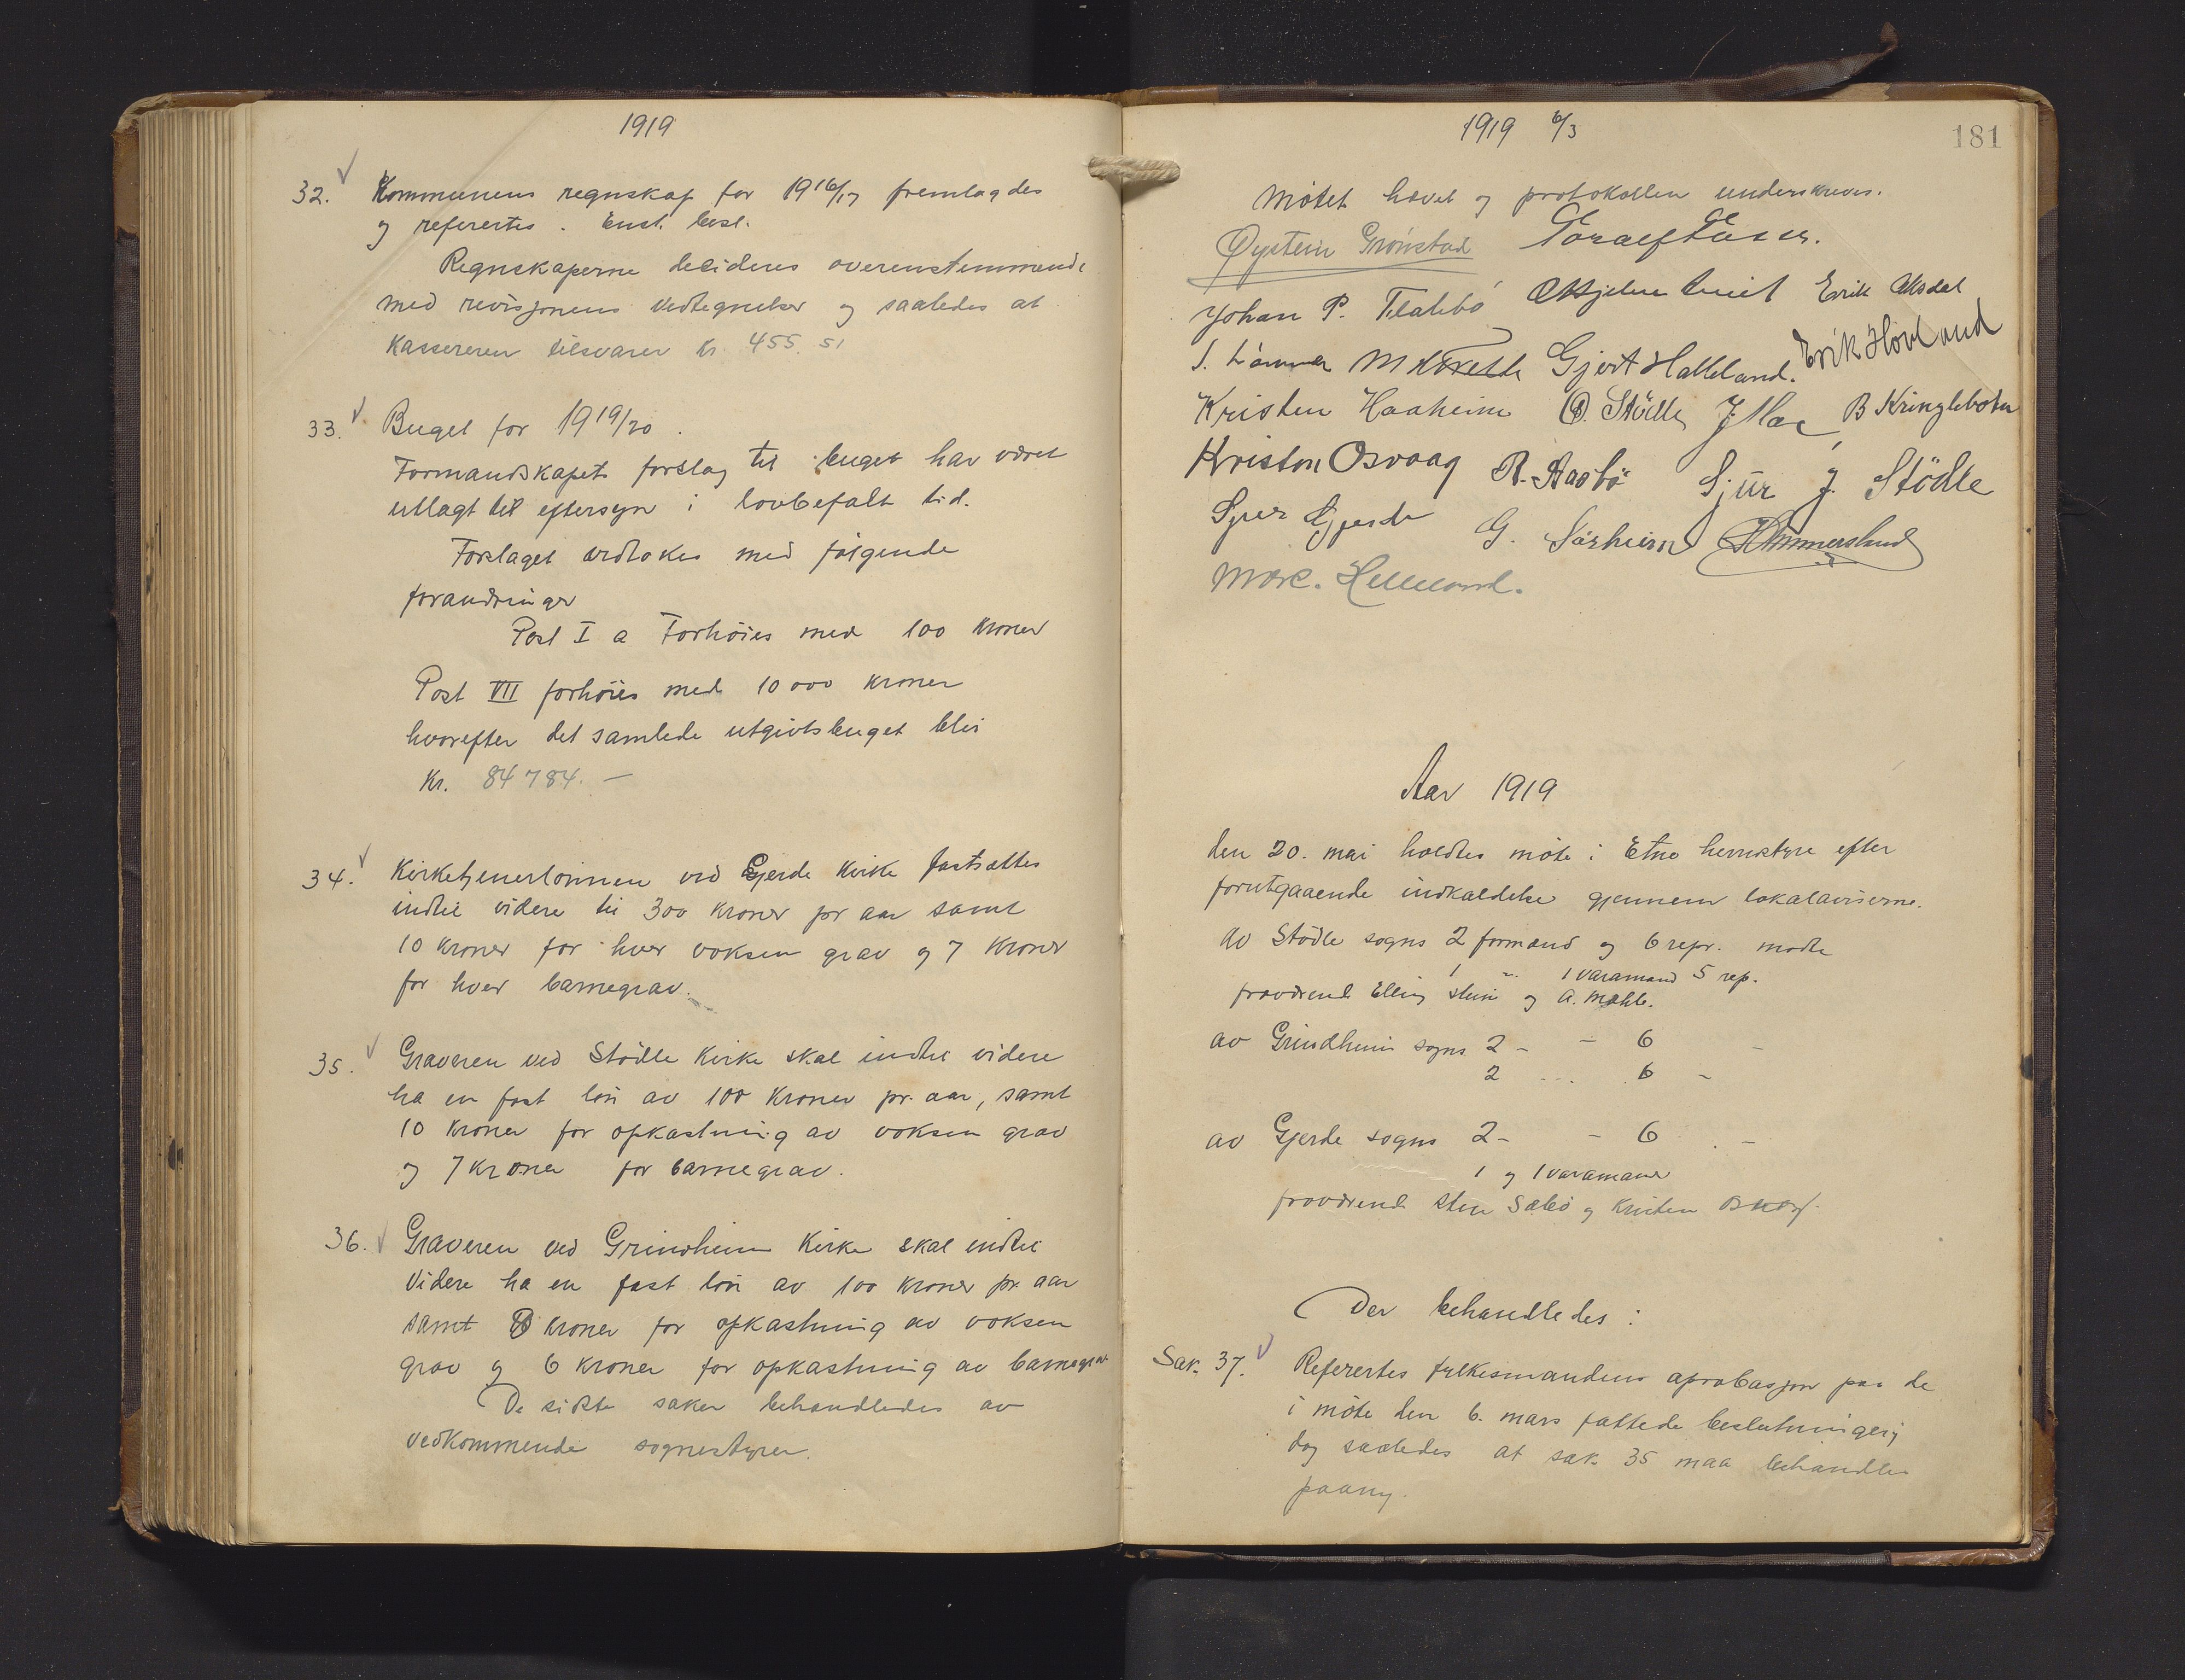 1919
32. Kommunens regnskap for 1916/17 fremlagdes
og refertes. Enst. besl.
Regnskaperne decideres overenstemmende
med revisjonens vedtegnelser og saaledes at
kassereren tilsvarer kr. 455.51
33. Buget for 1919/20.
Formandskapets forslag til buget har været
utlagt til eftersyn i lovbefalt tid.
Forslaget vedtokes med følgende
forandringer
Post I a Forhöies med 100 kroner
Post VII forhöies med 10000 kroner
hvorefter det samlede utgivtsbuget blir
Kr. 84784.—
34. Kirketjenerlönnen ved Gjerde kirke fastsættes
indtil videre til 300 kroner pr aar samt
10 kroner for hver voksen grav og 7 kroner
for hver barnegrav.
35. Graveren ved Stödle Kirke skal indtil videre
ha en fast lön av 100 kroner pr. aar, samt
10 kroner for opkastning av voksen grav
og 7 kroner for barnegrav.
36. Graveren ved Grindheim Kirke skal indtil
videre ha en fast lön av 100 kroner pr. aar
samt 8 kroner for opkastning av voksen
grav og 6 kroner for opkastning av barnegrav
De sidste saker behandledes av
vedkommende sognestyrer.
1919 6/3
181
Mötet hævet og protokollen underskreves.
Øystein Grönstad
Johan P. Flatebö Erik Aksdal
Gjert Halleland. Erik Hövland
Kristen Haaheim O. Stödle J. Moe B Kringlebotn
Kriston Osvaag R. Aasbö Sjur J. Stödle
Sjur Gjerde G. Sörheim
Aar 1919
den 20. mai holdtes möte i Etne herredstyre efter
forutgaaende indkaldelse gjennem lokalaviserne.
av Stödle sogns 2 formænd og 6 repr. mödte
1 " 1 varamand 5 rep.
fraværende Elling og A. Mæhle.
av Grindheim sogns 2 - - 6 -
2 ... 6 -
av Gjerde sogns 2 - - 6 -
1 og 1 varamand
fraværende Sten Sæbö og Kristen
Der behandledes:
Sak. 37. Referertes fylkesmandens aprobasjon paa de
i möte den 6. mars fattede beslutninger;
dog saaledes at sak 35 maa behandles
paany.